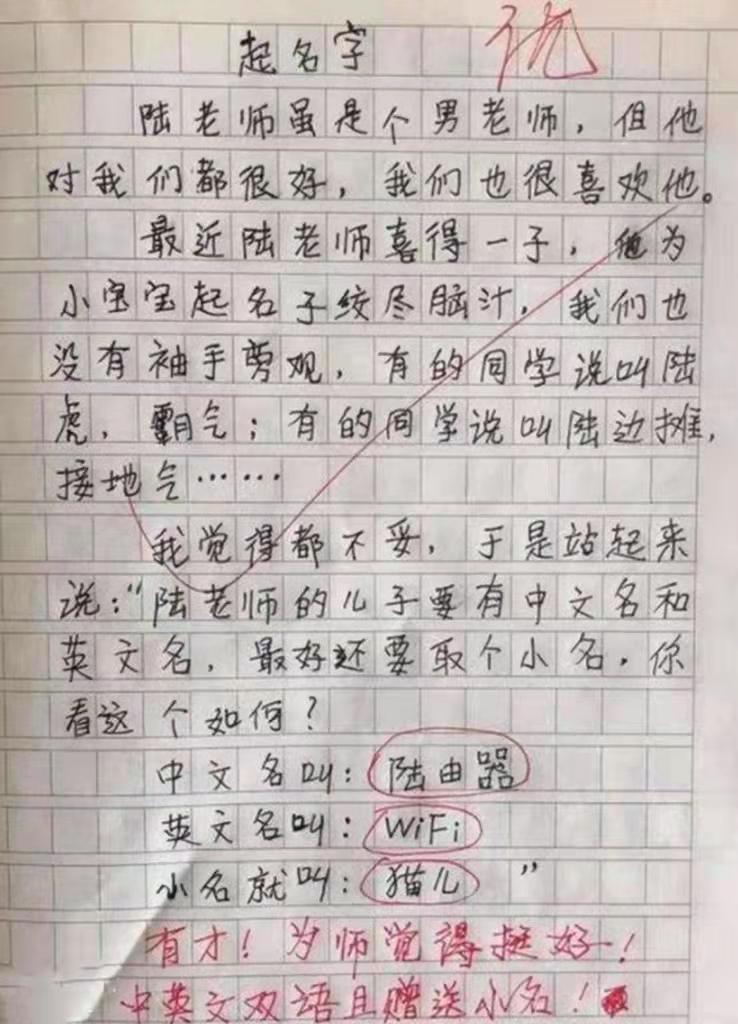 起名字
优
陆老师虽是个男老师，但他
对我们都很好，我们也很喜欢他。
最近陆老师喜得一子，他为
小宝宝起名子绞尽脑汁，我们也
没有袖手旁观，有的同学说叫陆
虎，霸气；有的同学说叫陆边摊，
接地气……
我觉得都不妥，于是站起来
说：“陆老师的儿子要有中文名和
英文名，最好还要取个小名，你
看这个如何？
中文名叫：陆由器
英文名叫：WiFi
小名就叫：猫儿”
有才！为师觉得挺好！
中英文双语且赠送小名！